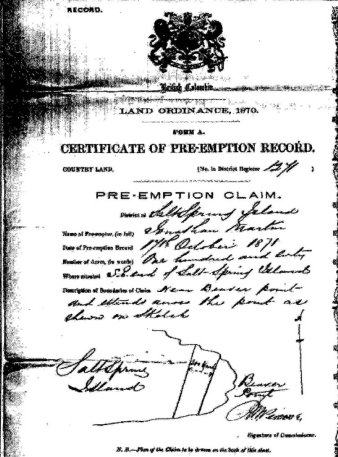 RECORD.
British Columbia
LAND ORDINANCE, 1870.
FORM A.
CERTIFICATE OF PRE-EMPTION RECORD.
COUNTRY LAND. (No. in District Register )
PRE-EMPTION CLAIM.
District of Salt Spring Island
Name of Pre-emptor, (in full) Jonathan Martin
Date of Pre-emption Record 17th October 1871
Number of Acres, (in words) One hundred and sixty
Where situated S.E. end of Salt Spring Island
Description of Boundaries of Claim Near Beaver point
and extends across the point as
shewn on Sketch
Salt Spring
Island
Beaver
Point
Signature of Commissioner.
N. B.—Plan of the Claim to be drawn on the back of this sheet.